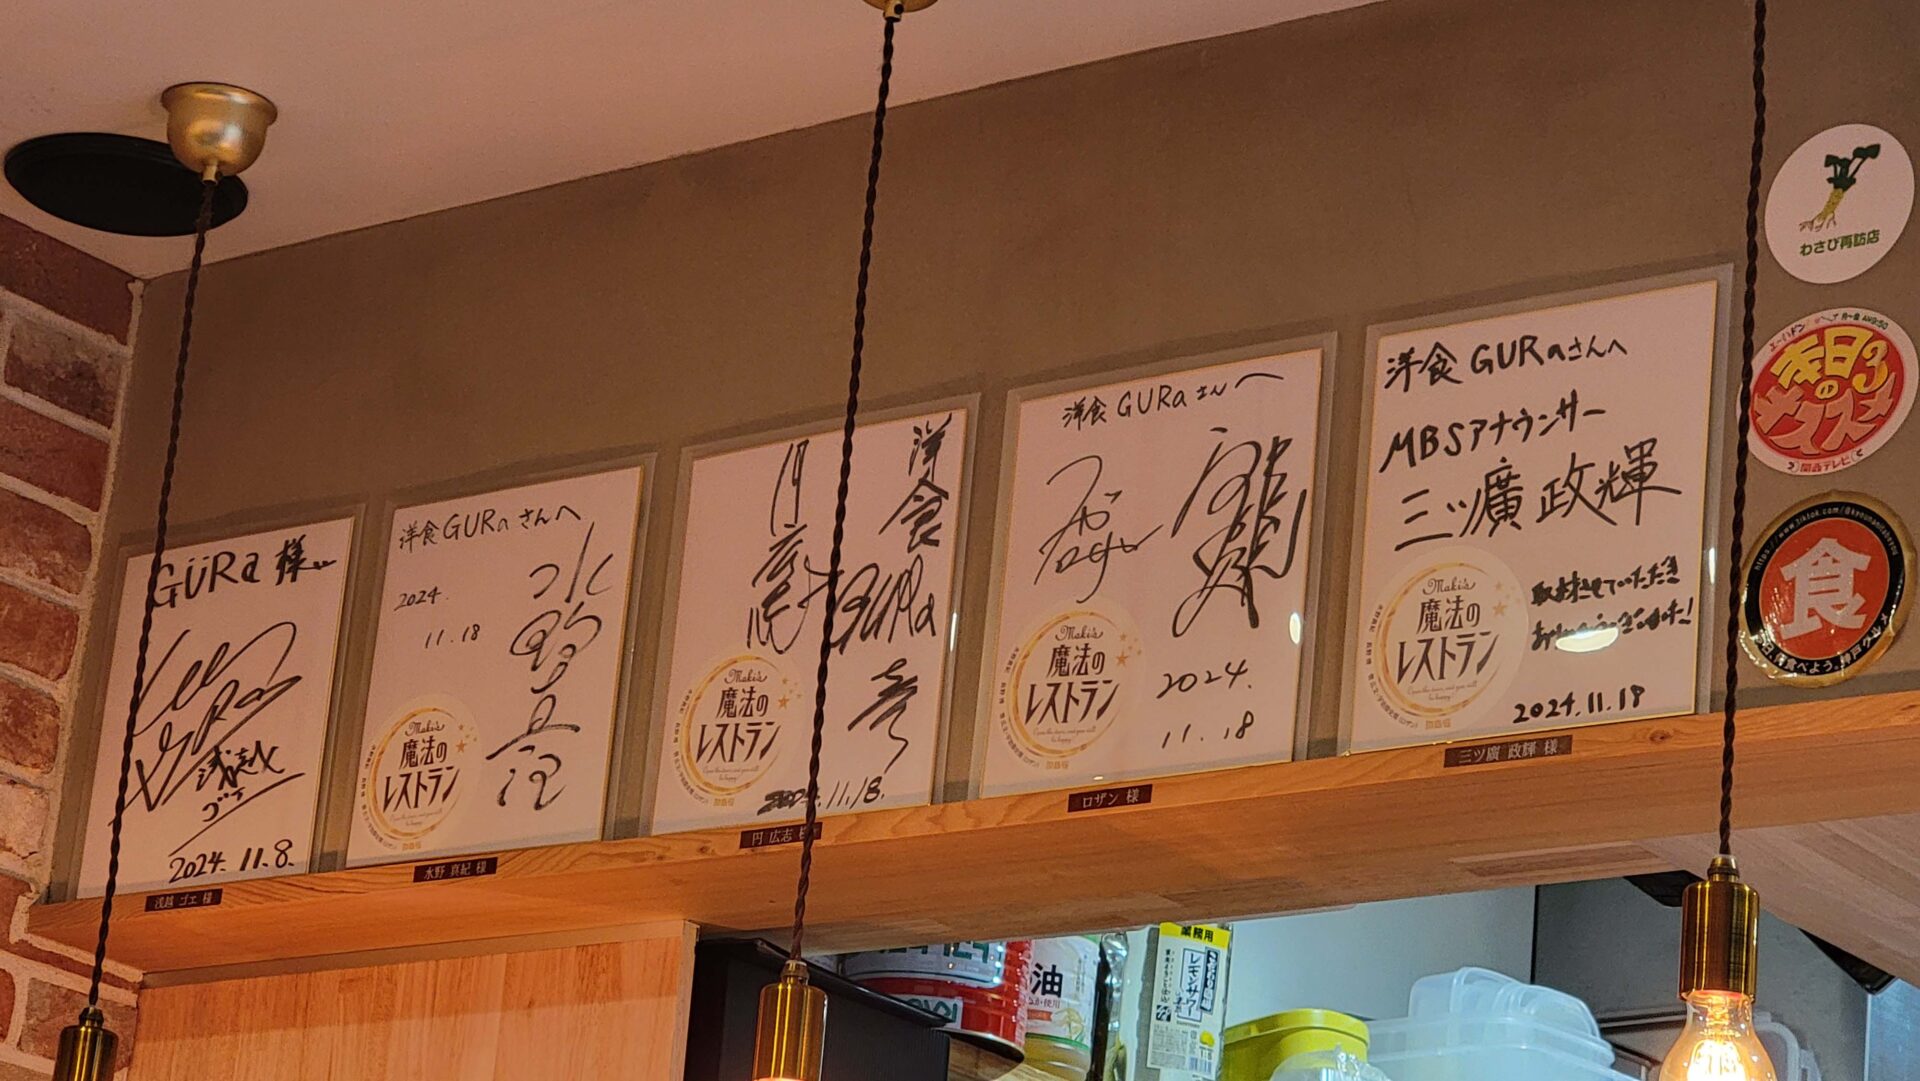 GURa 様
浅越
ゴエ
2024. 11.8.
浅越 ゴエ 様
洋食GURaさんへ
2024.
11.18
水野真紀
Maki's
魔法の
レストラン
水野 真紀 様
洋食
GURa
円広志
Maki's
魔法の
レストラン
2024.11.18.
円 広志 様
洋食 GURa さんへ
Maki's
魔法の
レストラン
2024.
11.18
ロザン 様
洋食 GURaさんへ
MBSアナウンサー
三ツ廣 政輝
取材させていただき
ありがとうございました!
Maki's
魔法の
レストラン
2024.11.18
三ツ廣 政輝 様
わさび再訪店
よ〜いドン
月〜金 AM9:50
本日の3
オススメ
関西テレビ
https://www.tiktok.com/
食
神戸グルメ
油
業務用
レモンサワー